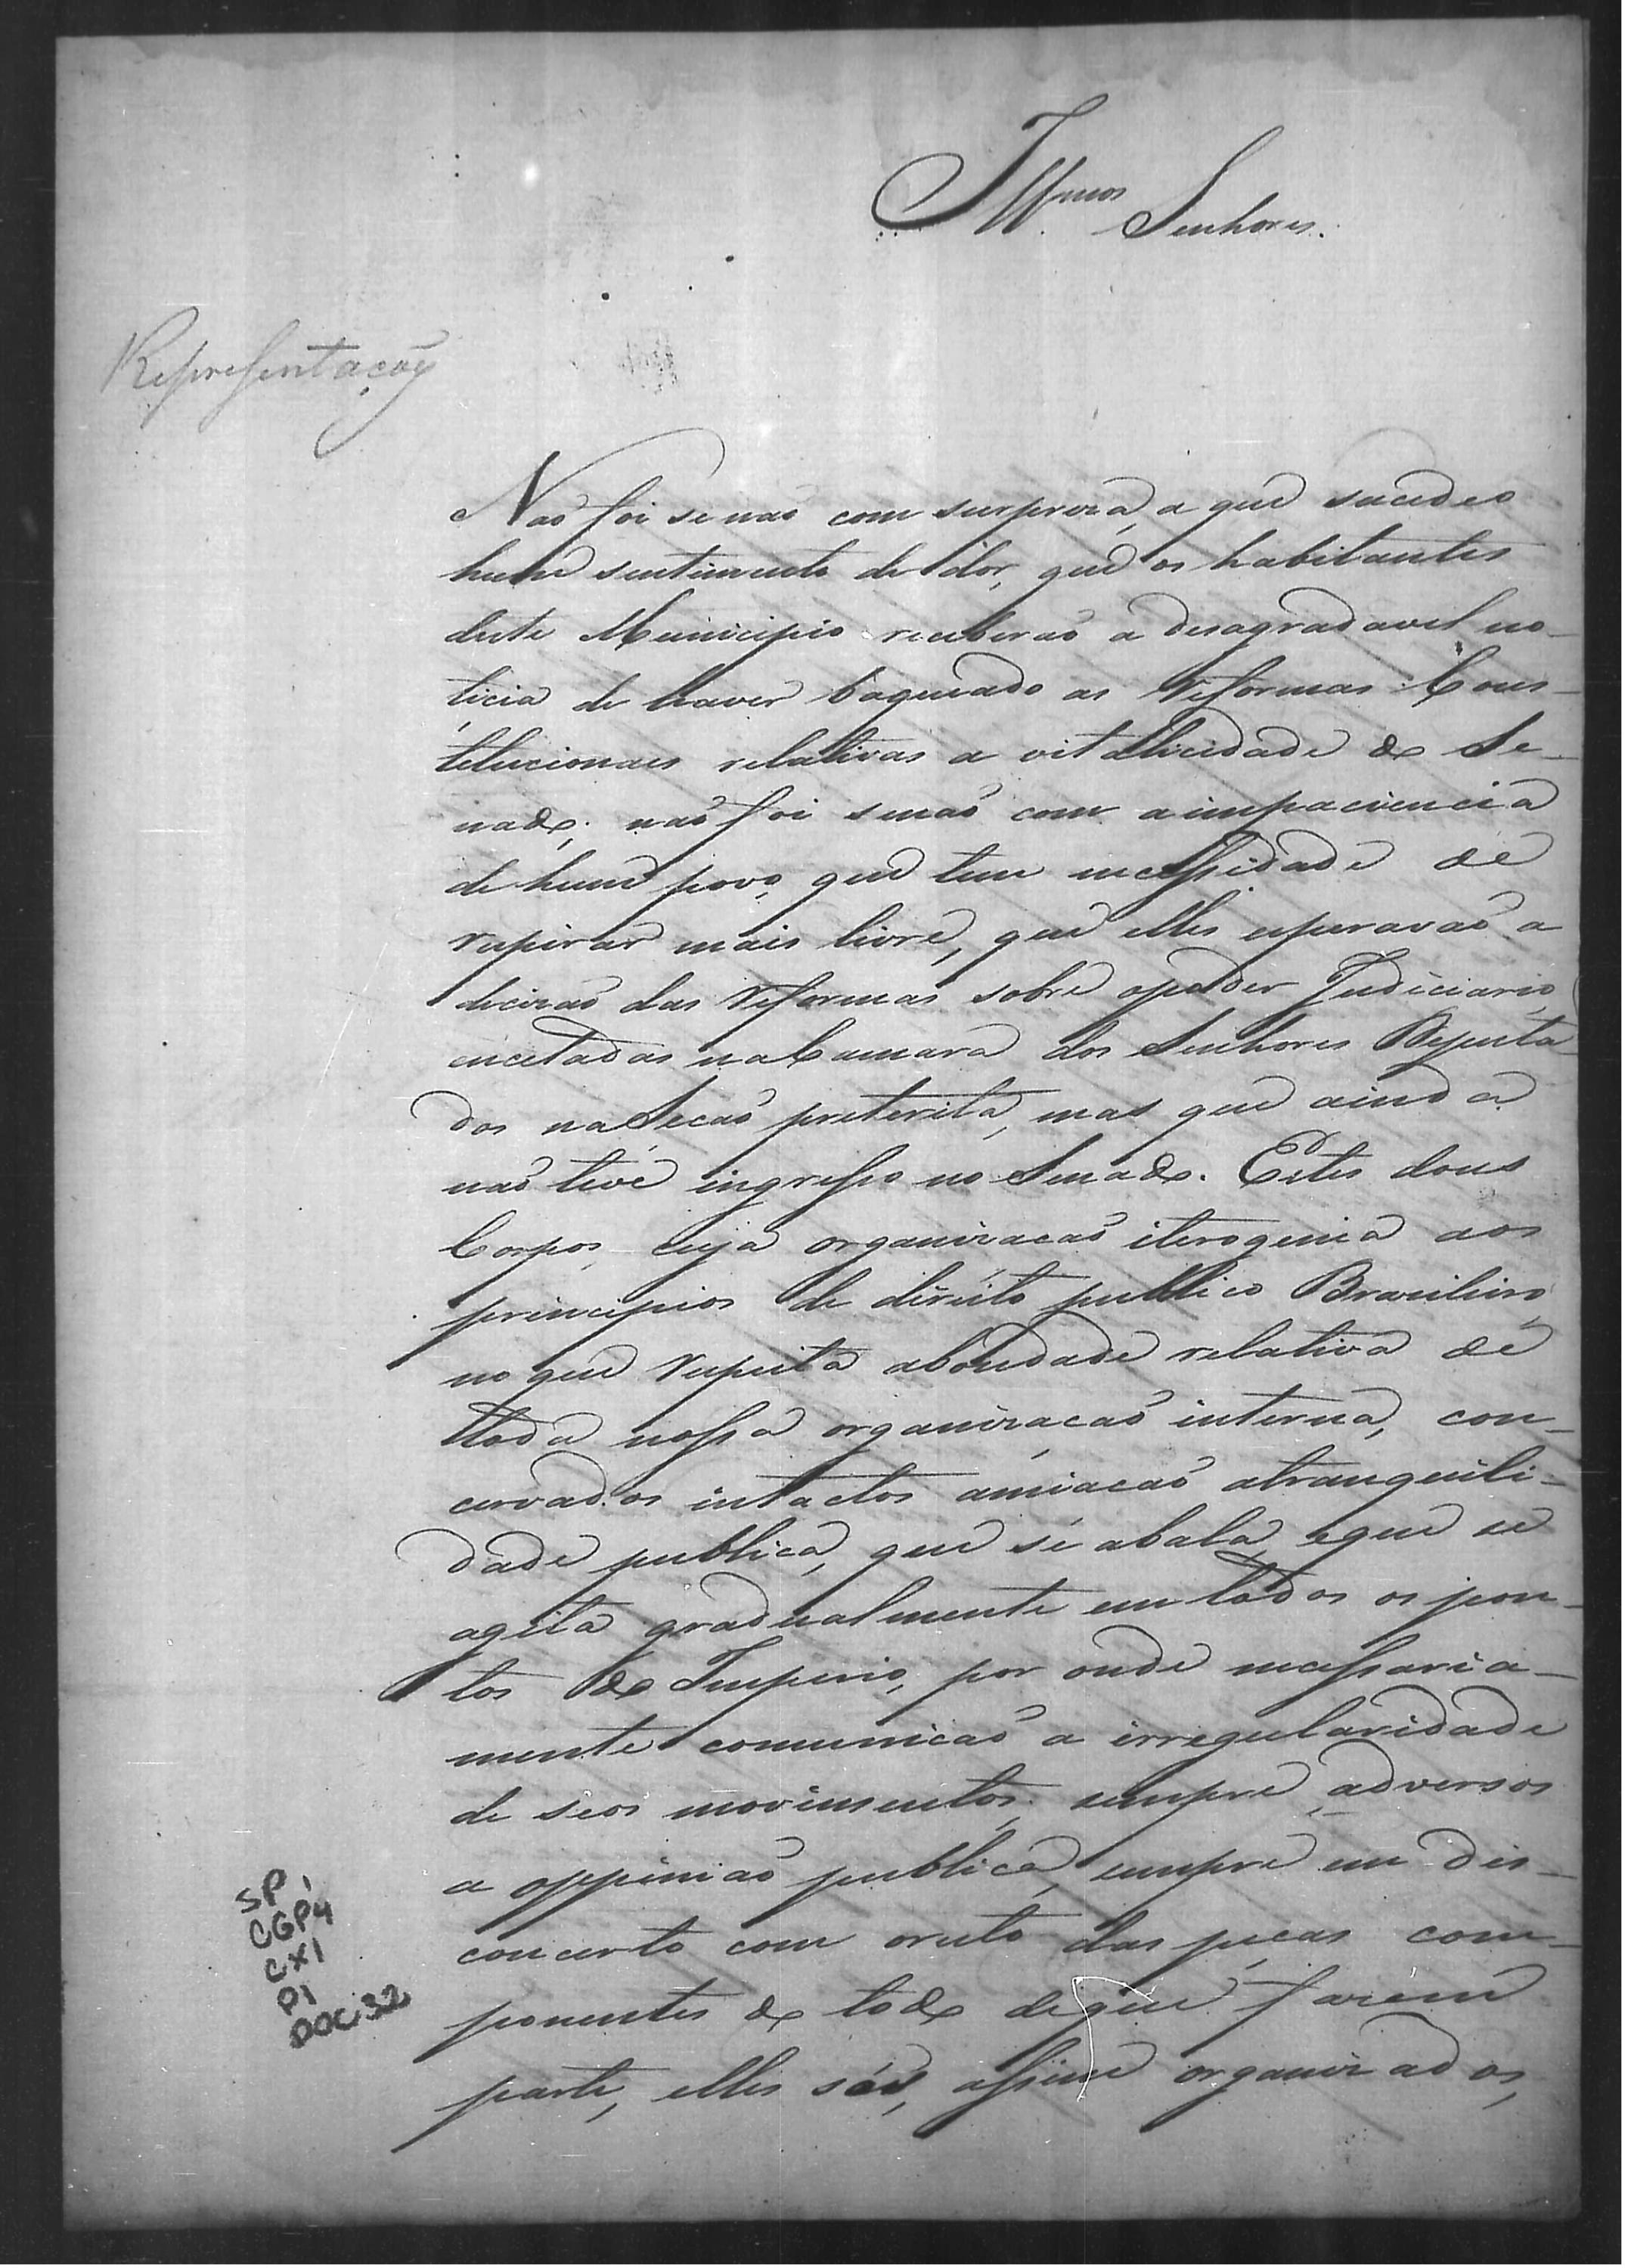 Illmos Senhores.
Representação
Não foi senão com surpreza, a que sucedeo
hum sentimento de dor, que os habitantes
deste Municipio receberão a desagradavel no-
ticia de haver baqueado as Reformas Cons-
titucionaes relativas a vitaliciedade do Se-
nado; não foi senão com a impaciencia
de hum povo, que tem necessidade de
respirar mais livre, que elles esperavão a
decizão das Reformas sobre o poder Judiciario
encetadas na Camara dos Senhores Deputa-
dos na Secão preterita, mas que ainda
não teve ingresso no Senado. Estes dous
Corpos, cuja organizacão iterogenia aos
principios de direito publico Brazileiro
no que respeita a bondade relativa de
toda nossa organizacão interna, con-
cervados intactos amiacão a tranquili-
dade publica, que se abala, e que se
agita gradualmente em todos os pon-
tos do Imperio, por onde necessaria-
mente comunicão a irregularidade
de seos movimentos; sempre adversos
a oppinião publica, sempre em des-
concerto com o resto das peças com-
ponentes do todo de que fazem
parte, elles são, assim organizados,
SP,
CGP4
CX1
P1
DOC32